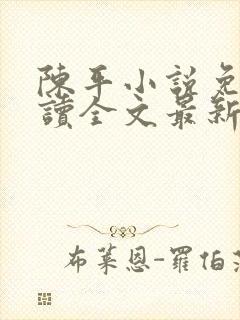 陳平小說免
讀全文最新
布萊恩-羅伯